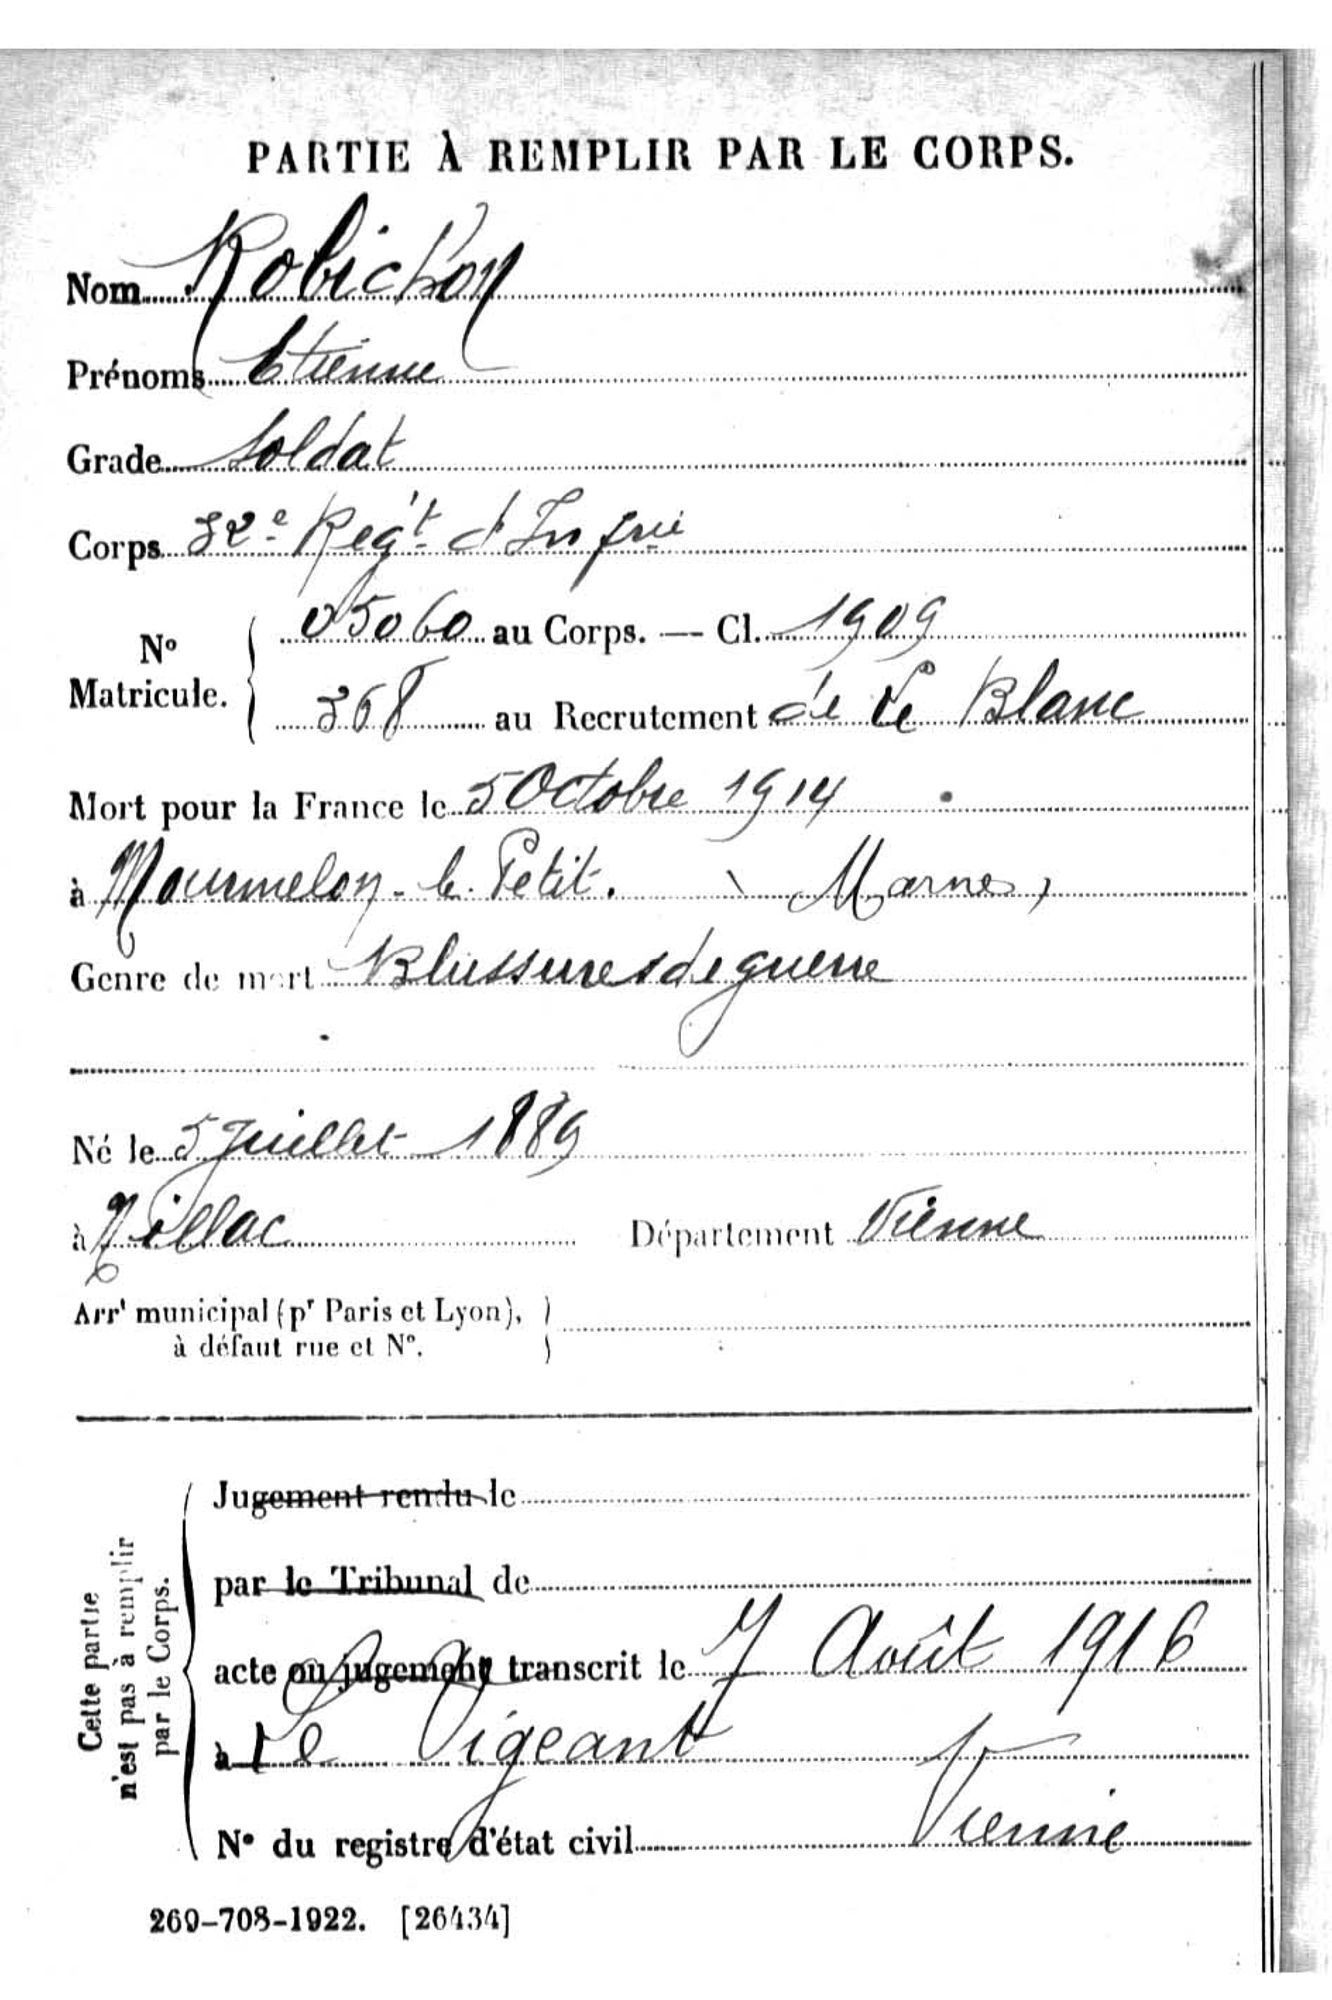 PARTIE À REMPLIR PAR LE CORPS.
Nom Robichon
Prénoms Etienne
Grade Soldat
Corps 32e Reg't d'Infrie
No Matricule. 05060 au Corps. — Cl. 1909
368 au Recrutement de Le Blanc
Mort pour la France le 5 Octobre 1914
à Mourmelon-le-Petit. (Marne)
Genre de mort Blessures de guerre
Né le 5 Juillet 1889
à Millac Département Vienne
Arrt municipal (pr Paris et Lyon),
à défaut rue et No.
Cette partie
n'est pas à remplir
par le Corps.
Jugement rendu le
par le Tribunal de
acte ou jugement transcrit le 7 Août 1916
à Le Vigeant
No du registre d'état civil Vienne
269-708-1922. [26434]